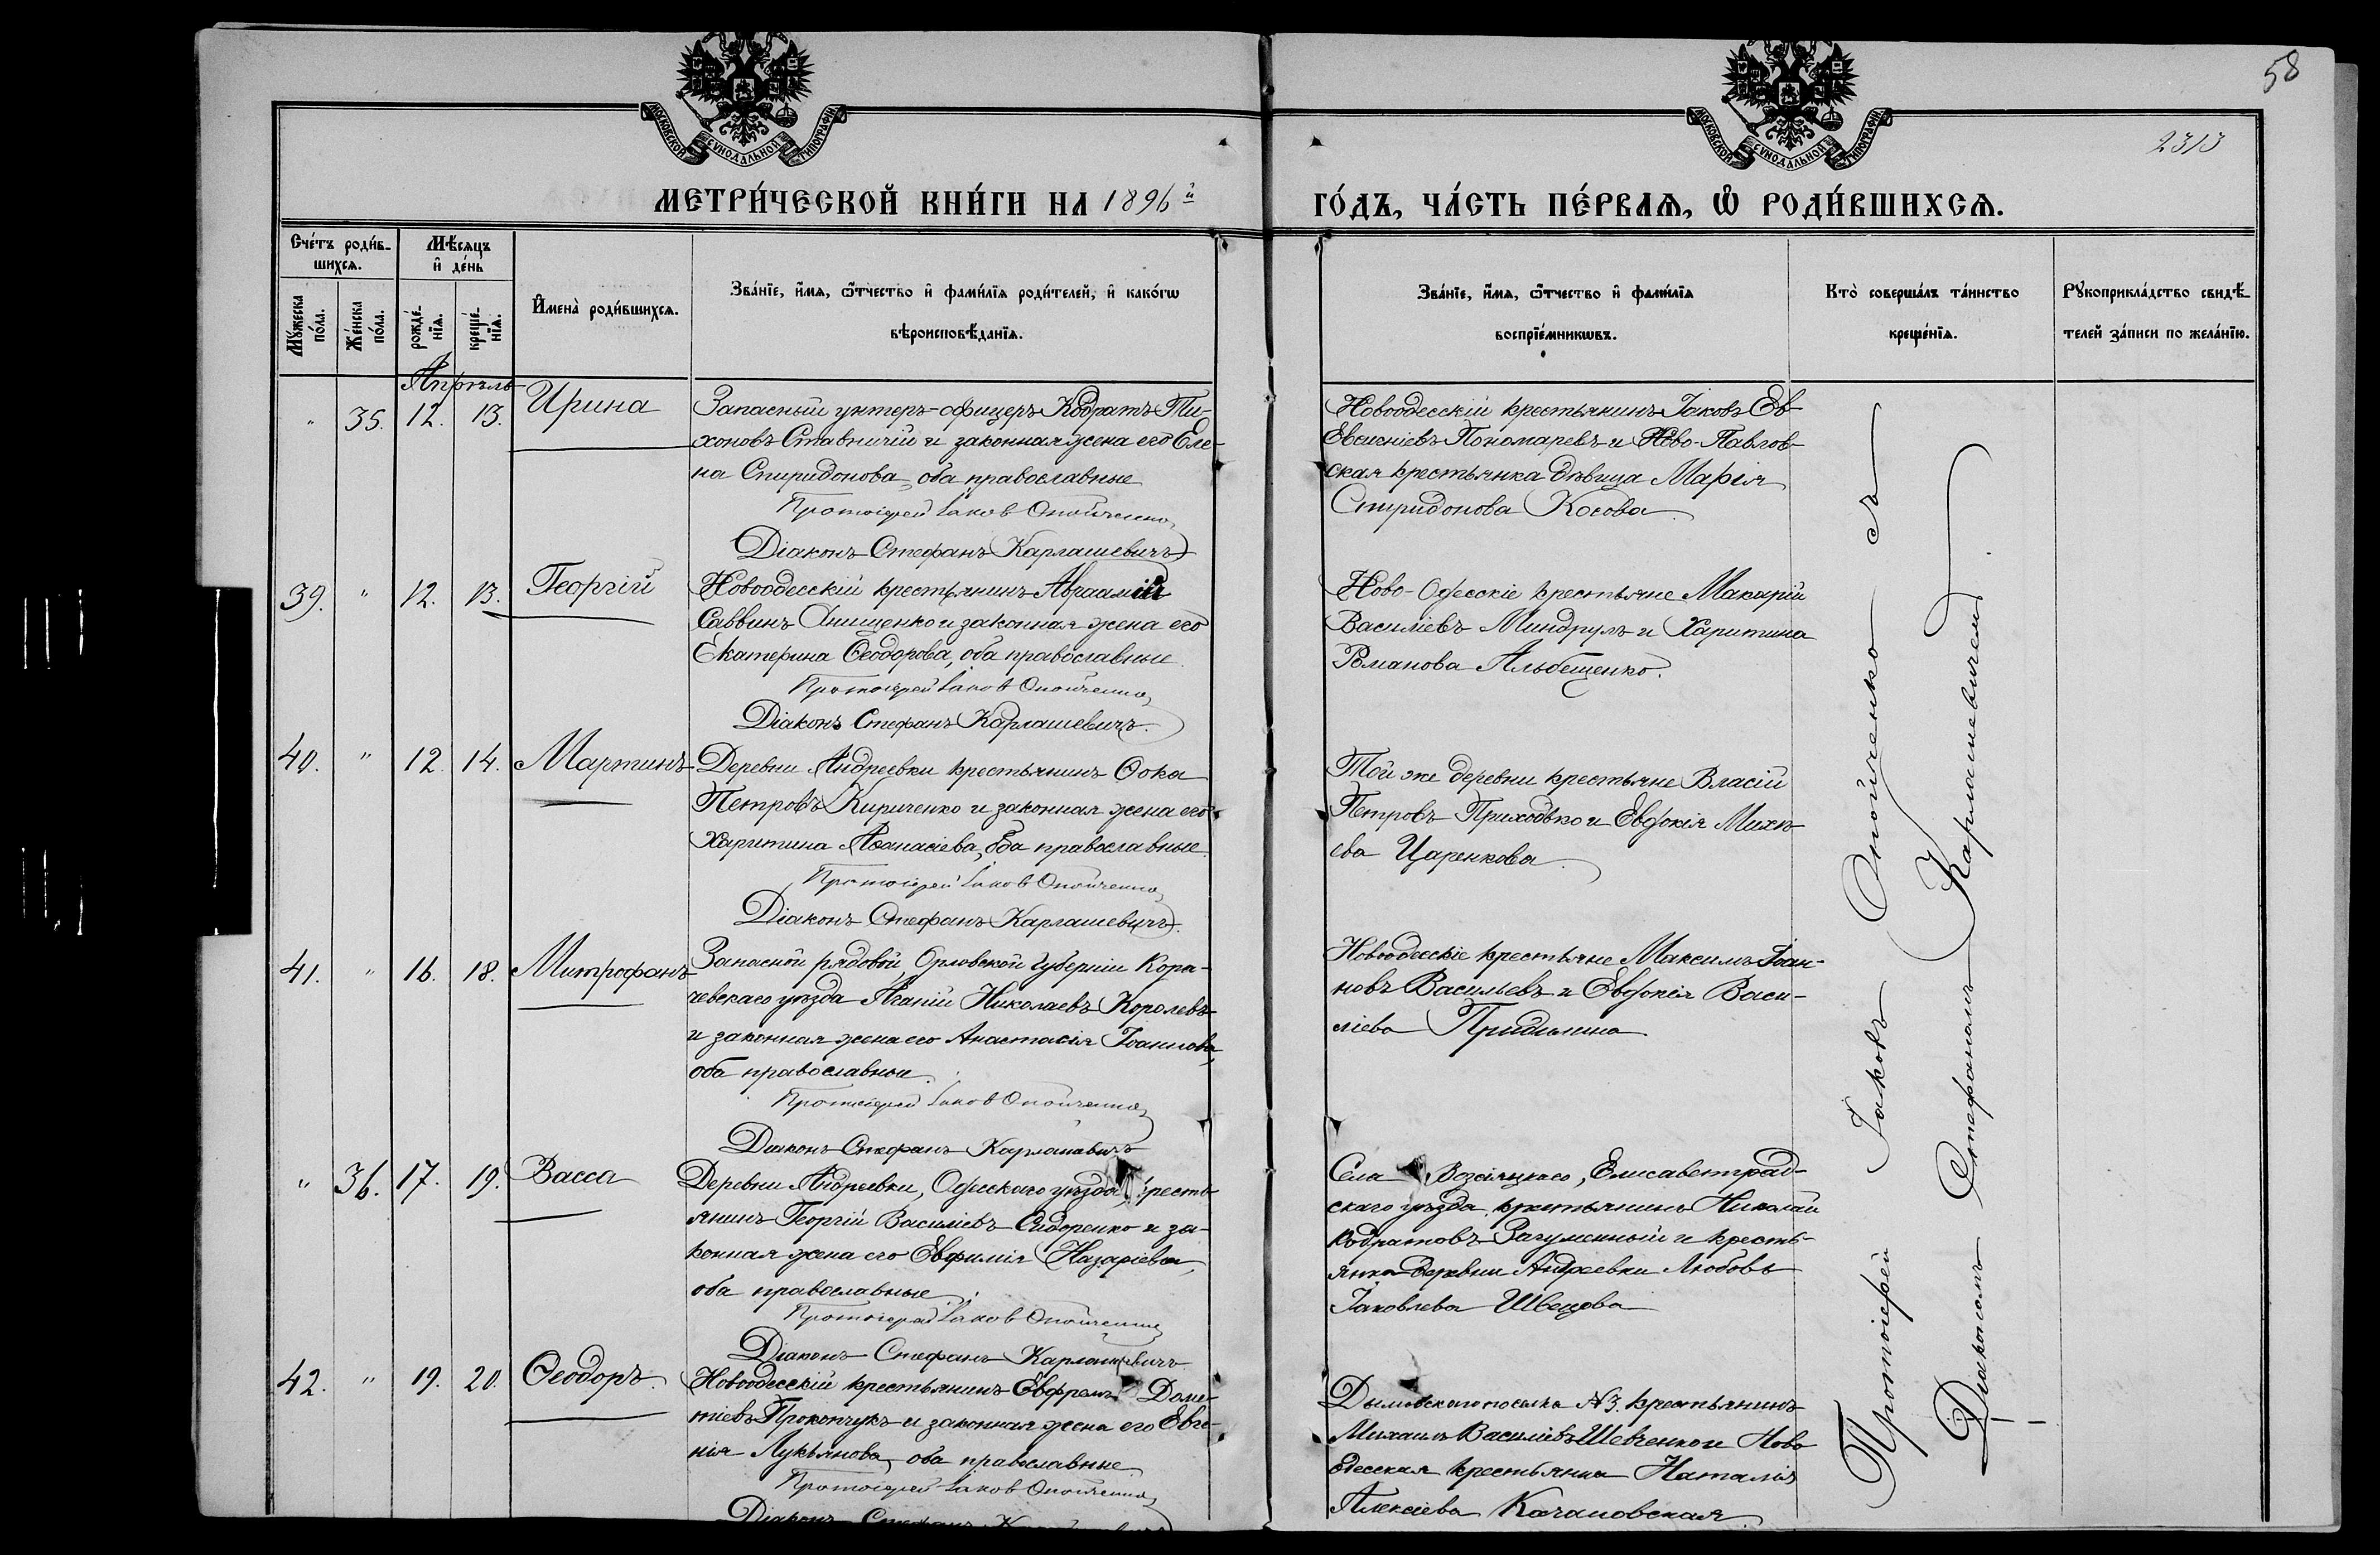 58
2313
МОСКОВСКОЙ СУНОДАЛЬНОЙ ТИПОГРАФІИ
МОСКОВСКОЙ СУНОДАЛЬНОЙ ТИПОГРАФІИ
МЕТРИ́ЧЕСКОЙ КНИ́ГИ НА 1896й ГО́ДЪ, ЧА́СТЬ ПЕ́РВАѦ, Ѡ РОДИ́ВШИХСѦ.
Сче́тъ роди́вшихсѧ.
Мꙋ́жеска по́ла.
Же́нска по́ла.
Мѣ́сѧцъ и де́нь
рожде́нїѧ.
креще́нїѧ.
Имена̀ роди́вшихсѧ.
Зва́нїе, и́мѧ, ѿтчество и фами́лїѧ роди́телей, и како́гѡ
вѣроисповѣ́данїѧ.
Зва́нїе, и́мѧ, ѿтчество и фами́лїѧ
воспрїе́мникѡвъ.
Кто̀ соверша́лъ та́инство
креще́нїѧ.
Рꙋкоприкла́дство свидѣ́-
телей за́писи по жела́нїю.
Апрѣль
" 35. 12. 13. Ирина
Запасный унтеръ-офицеръ Кодратъ Ти-
хоновъ Ставничій и законная жена его Еле-
на Спиридонова, оба православные
Протоіерей Іаков Опойченко
Діаконъ Стефанъ Карлашевичъ
Новоодесскій крестьянинъ Іаковъ Ев-
Евсигніевъ Пономаревъ и Ново-Павлов-
ская крестьянка дѣвица Марія
Спиридонова Косова
39. " 12. 13. Георгій
Новоодесскій крестьянинъ Авраамій
Саввинъ Онищенко и законная жена его
Екатерина Ѳеодорова, оба православные.
Протоіерей Іаков Опойченко
Діаконъ Стефанъ Карлашевичъ.
Ново-Одесскіе крестьяне Макарій
Василіевъ Миндрулъ и Харитина
Романова Альбещенко.
40. " 12. 14. Мартинъ
Деревни Андреевки крестьянинъ Ѳока
Петровъ Кириченко и законная жена его
Харитина Аѳанасіева, оба православные.
Протоіерей Іаков Опойченко
Діаконъ Стефанъ Карлашевичъ.
Той же деревни крестьяне Власій
Петровъ Приходько и Евдокія Михѣ
ева Царенкова.
41. " 16. 18. Митрофанъ
Запасной рядовой, Орловской губерніи Кара-
чевскаго уѣзда Агапій Николаевъ Королевъ
и законная жена его Анастасія Іоаннова,
оба православные.
Протоіерей Іаков Опойченко
Діаконъ Стефанъ Карлашевичъ
Новоодесскіе крестьяне Максимъ Іоан-
новъ Васильевъ и Евдокія Васи-
ліева
" 36. 17. 19. Васса
Деревни Андреевки, Одесскаго уѣзда, кресть
янинъ Георгій Василіевъ Сидоренко и за-
конная жена его Евфимія Назаріева,
оба православные.
Протоіерей Іаков Опойченко
Діаконъ Стефанъ Карлашевичъ
Села Возсіяцкаго, Елисаветград-
скаго уѣзда, крестьянинъ Николай
Кодратовъ Загуменный и кресть-
янка деревни Андреевки Любовь
Іаковлева Швецова
42. " 19. 20. Ѳеодоръ.
Новоодесскій крестьянинъ Евфремъ Доме-
тіевъ Прокопчукъ и законная жена его Евге-
нія Лукьянова, оба православные
Протоіерей Іаков Опойченко
Діаконъ Стефанъ
Дымовскаго поселка №3. крестьянинъ
Михаилъ Василіевъ Шевченко и Ново
одесская крестьянка Наталія
Алексіева Качановская.
Протоіерей Іаковъ Опойченко съ
Діакономъ Стефаномъ Карлашевичем.